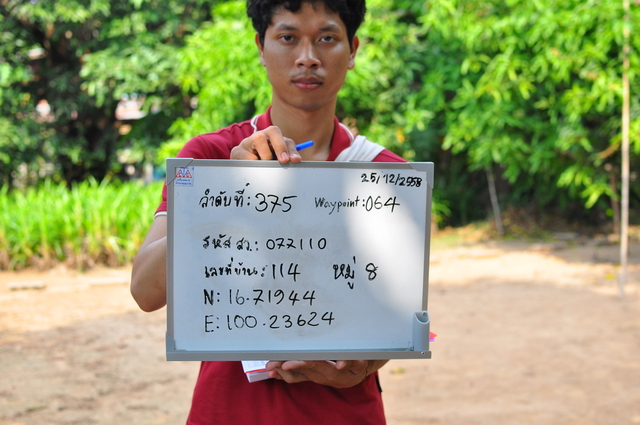 25/12/2558
ลำดับที่: 375 Waypoint: 064
รหัส สว.: 077110
เลขที่บ้าน: 114 หมู่ 8
N: 16.71944
E: 100.23624